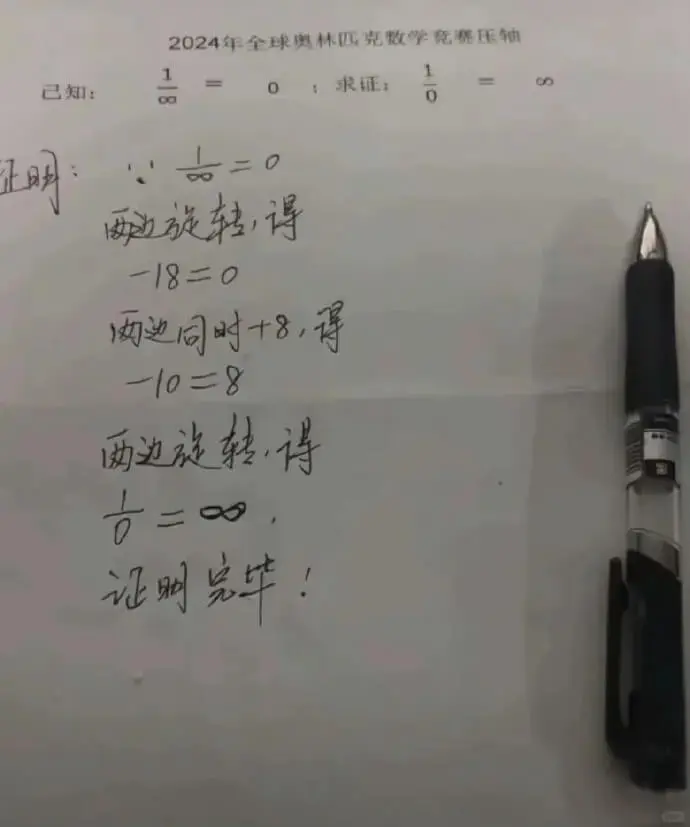 2024年全球奥林匹克数学竞赛压轴
已知: 1/∞ = 0 ; 求证: 1/0 = ∞
证明: ∵ 1/∞ = 0
两边旋转,得
-18=0
两边同时+8,得
-10=8
两边旋转,得
1/0 = ∞.
证明完毕!